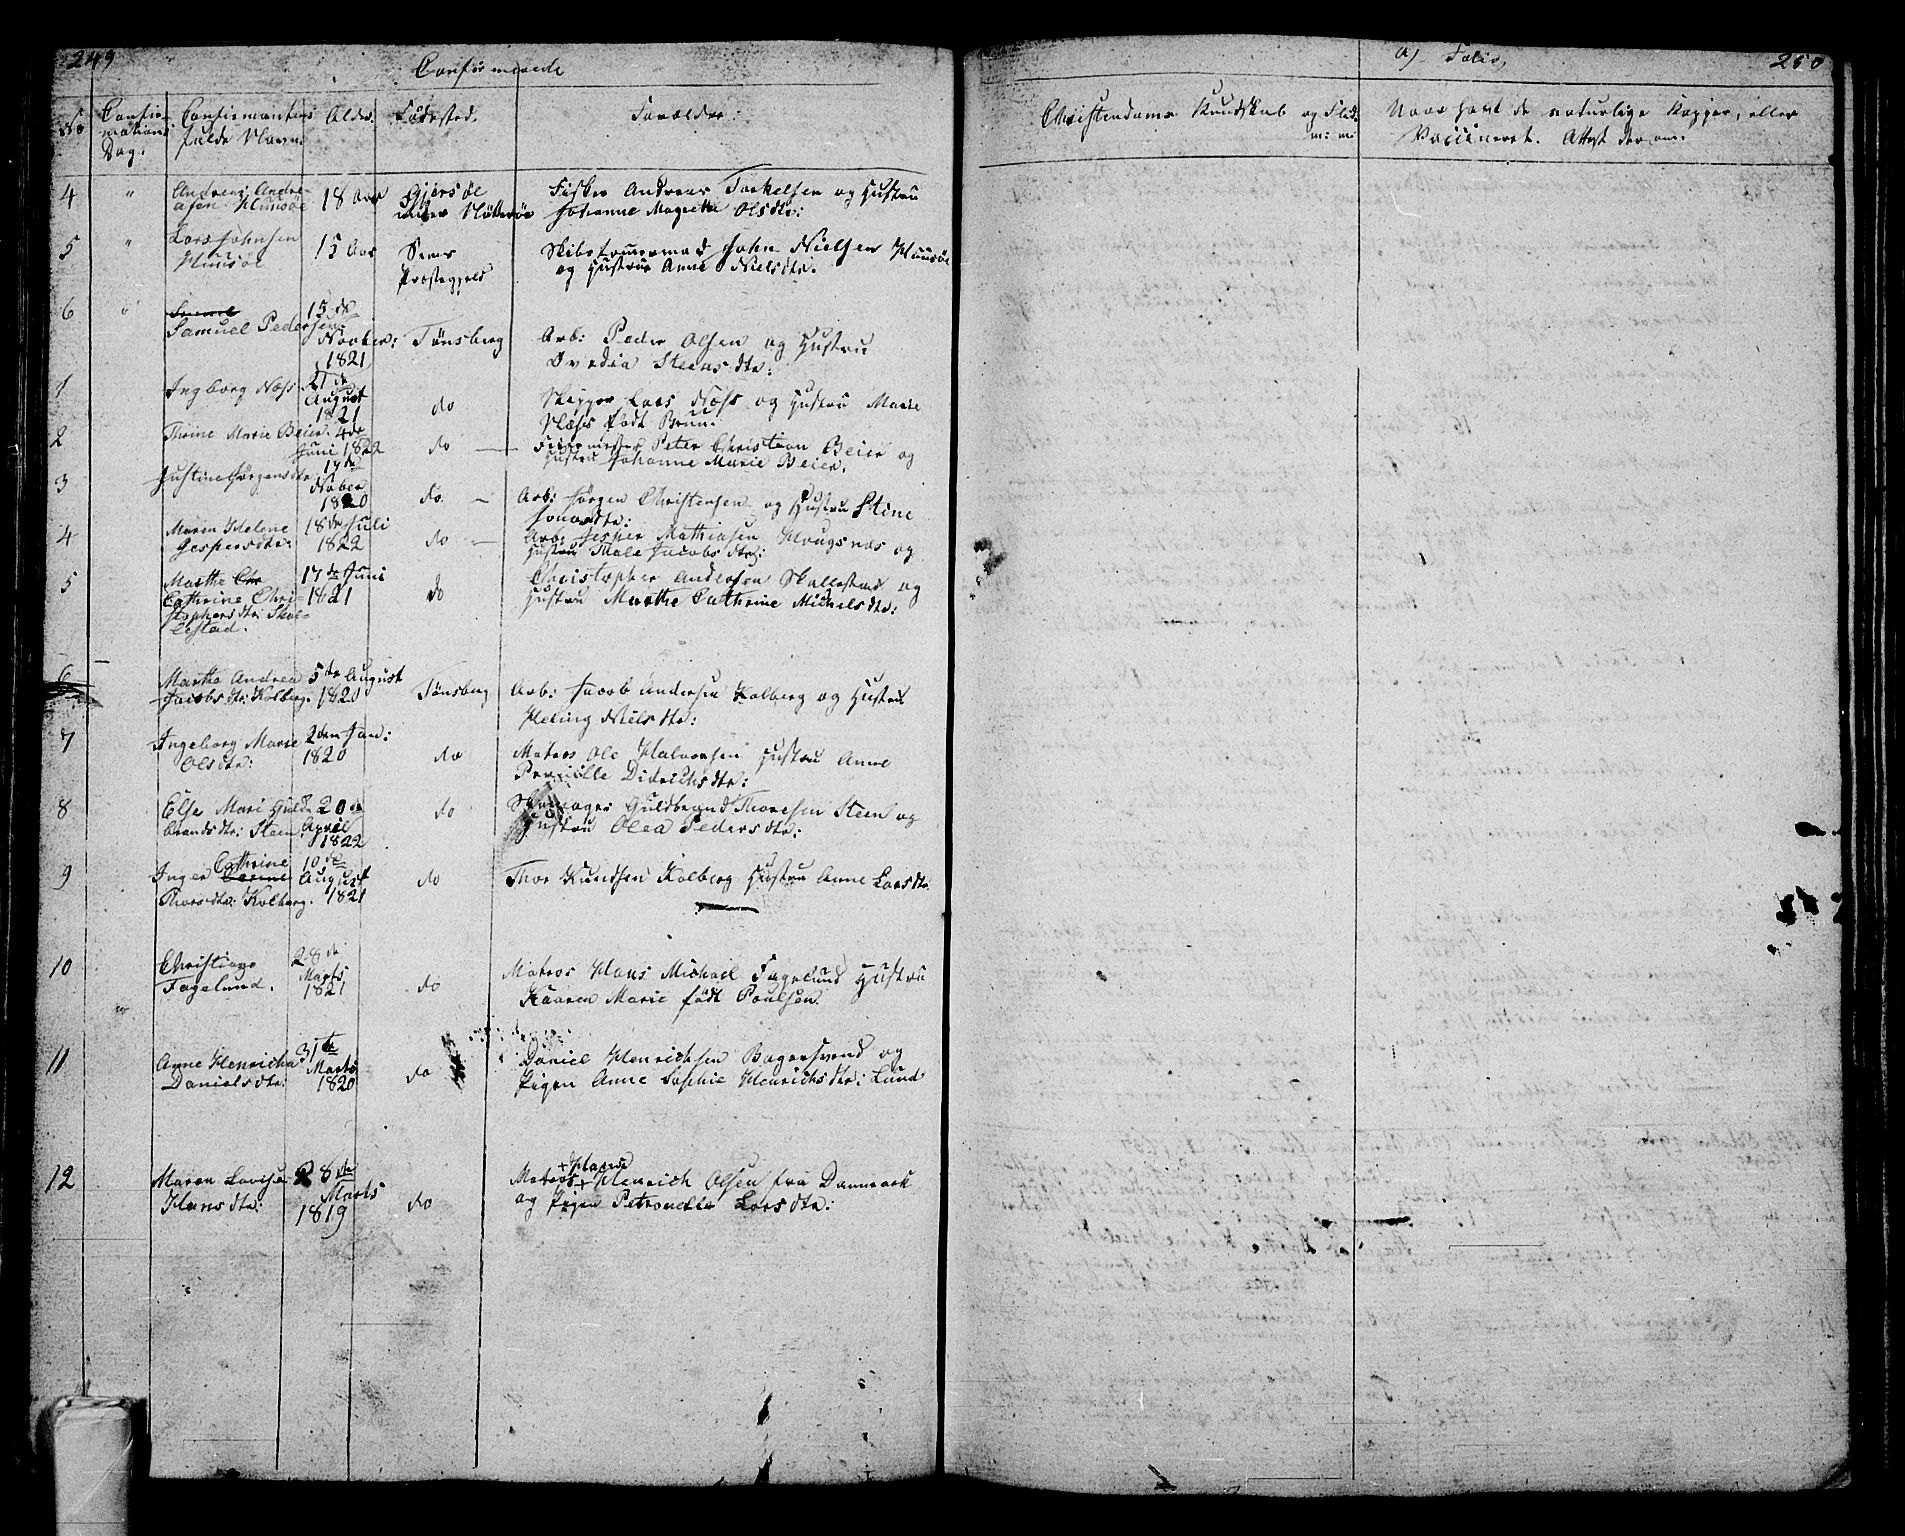 249
Confirmerede
No
Confir-
mations
Dag.
Confirmantens
fulde Navn.
Alder.
Fødested.
Forældre
4 " Andreas Andre-
asen Huusøe
18 Aar
under Nøtterøe
Fisker Andreas Torkelsen og Hustru
Johanne Magrethe Olsdtr:
5 " Lars Johnsen
Huusøe
15 Aar
Sems
Præstegjeld
Skibstømmermand John Nielsen Huusøe
og Hustrue Anne Nielsdtr.
6 "
Samuel Pedersen
15de
Novber:
1821
Tønsberg
Arb: Peder Olsen og Hustru
Ovedia Steensdtr:
1 Ingborg Næss
21de
August
1821
do
Skipper Lars Næss og Hustru Marie
Næss født Bruun.
2 Thrine Marie Beier.
4de
Juni 1822
do
Peter Christian Beier og
Hustru Johanne Marie Beier.
3 Justine Jørgensdtr
17de
Nober
1820
do. —
Arb: Jørgen Christensen og Hustru Stine
4 Maren Helene
Jespersdtr:
18de Juli
1822
do —
Arb: Jesper Mathiasen Hougsnæs og
Hustru Male Jacobsdtr:
5 Marthe Chr
Cathrine Chri-
stophersdtr: Skal-
lestad.
17de Juni
1821
do
Christopher Andersen Skallestad og
Hustru Marthe Cathrine Michelsdtr:
6 Marthe Andrea
Jacobsdtr: Kolberg.
5te August
1820
Tønsberg
Arb: Jacob Andersen Kolberg og Hustru
Heling Nielsdtr:
7 Ingeborg Marie
Olsdtr:
2den Jan:
1820
do
Matros Ole Halvorsen Hustru Anne
Pernille Didrichsdtr:
8 Else Mari Guld-
brandsdtr: Steen
20de
April
1822
do
Skomager Guldbrand Thoresen Steen og
Hustru Olea Pedersdtr:
9 Cathrine
Inger
Thorsdtr: Kolberg.
10de
August
1821
do
Thor Knudsen Kolberg Hustru Anne Larsdtr
10 Christiane
Fagelund.
28de
Marts
1821
do
Matros Hans Michael Fagelund Hustru
Kaaren Marie født Poulsen
11 Anne Henricha
Danielsdtr:
31te
Marts
1820
do
Daniel Henrichsen Bagersvend og
Pigen Anne Sophie Henrichsdtr: Lund
12 Maren Lovise
Hansdtr:
28de
Marts
1819
do
+ Hans
Matros + Henrich Olsen fra Danmark
og Pigen Petronelle Larsdtr:
a) Folio,
250
Christendoms Kundskab og Flid
m: m:
Naar havt de naturlige Kopper, eller
Vaccineret. Attest derom.